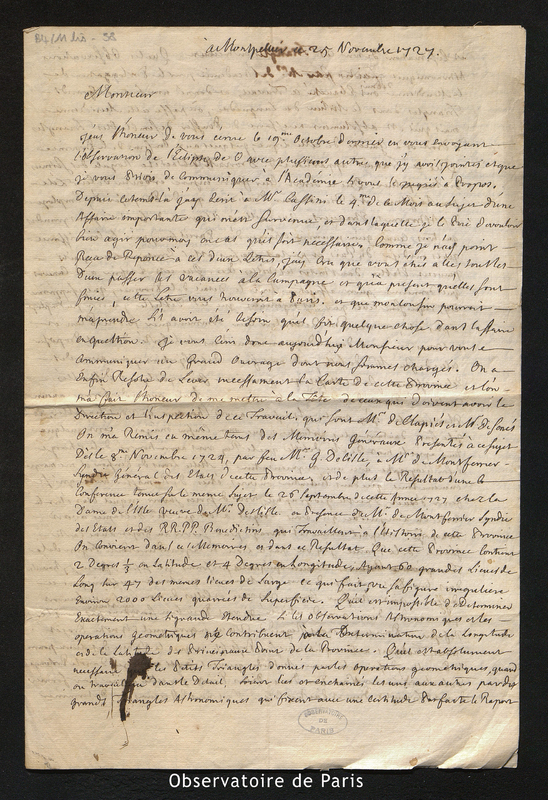 B4/11 bis - 38
à Montpellier ce 25 Novembre 1727.
Monsieur
J'eus l'honneur de vous ecrire le 19me Octobre dernier en vous envoyant
l'observation de l'Eclipse de O avec plusieurs autres que j'y avois jointes et que
je vous priois de communiquer a l'Académie si vous le jugiés a propos.
Depuis ce tems là j'ay ecrit a Mr Cassini le 4me de ce Mois au sujet d'une
affaire importante qui m'est survenue, et dans laquelle je le prie de vouloir
bien agir pour moy en cas qu'il soit necessaire, comme je n'ay point
Receu de Reponce à ces deux Lettres, j'ay cru que vous étiés allés tous les
Deux passer les vacances a la Campagne et qu'a present qu'elles sont
finies, cette Lettre vous trouvera à Paris. et que
s'il avoit été besoin qu'il fit quelque chose dans l'affaire
en question. Je vous écris donc aujourd'huy Monsieur pour vous
communiquer un grand Ouvrage dont nous sommes chargés. On a
Enfin Resolu de Lever incessament la Carte de cette Province et l'on
m'a fait l'honneur de me metre à la Tête de ceux qui doivent avoir la
Direction et l'inspection de ce Travail, qui sont Mrs de Clapiés et
On m'a Remis en même tems des Memoires Generaux Presentés a ce sujet
Dès le 8me Novembre 1724, par feu Mr G. Delille, à Mr de Montferrier
Syndic General des Etats de cette Province, et de plus le Résultat d'une
Conference tenue sur le même sujet le 26 Septembre de cette Année 1727 chez la
Dame de l'isle Veuve de Mr Delille en Presence de Mr de Montferrier Syndic
des Etats et des RR. PP. Benedictins, qui Travaillent a l'Histoire de cette Province
On convient dans ces Memoires et dans ce Resultat, que cette Province contient
2 Degrés ½ en Latitude et 4 Degrés en Longitude, ayant 60 grandes Lieues de
Long sur 47 des memes lieues de Large ce qui fait vu sa figure irreguliere
Environ 2000 Lieues quarrées de superficie. Qu'il est impossible de Determiner
Exactement une si grande étendue si les observations Astronomiques et les
operations Geometriques ne contribuent pour la Determination de la Longitude
et de la Latitude des Principaux Points de la Province. Qu'il est absolument
necessaire que les Petits Triangles donnés par les operations geometriques, quand
on travaillera dans le Detail, soient liés et enchainés les uns aux autres par des
grands Triangles Astronomiques qui fixent avec une certitude Parfaite le Raport
OBSERVATOIRE DE PARIS
Observatoire de Paris